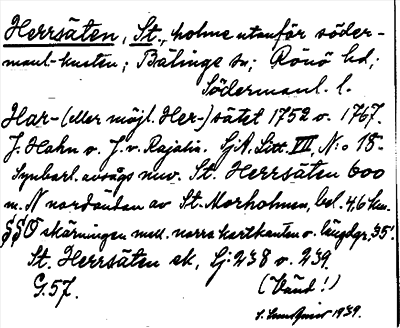 Herrsäten, St., holme utanför söder-
manl-kusten; Bälinge sn; Rönö hd;
Södermanl. l.
Har- (eller möjl. Her-) sätet 1752 o. 1767.
J. Hahn o. J. v. Rajalin. Sj.A. Sitt. VII, N:o 15.
Synbarl. avsågs nuv. St. Herrsäten 600
m. N nordändan av St. Morholmen, bel. 4,6 km.
SSO skärningen mell. norra kartkanten o. lägdgr. 35'.
St. Herrsäten ek, Sj: 238 o. 239.
G. 57. (Vänd!)
1939.